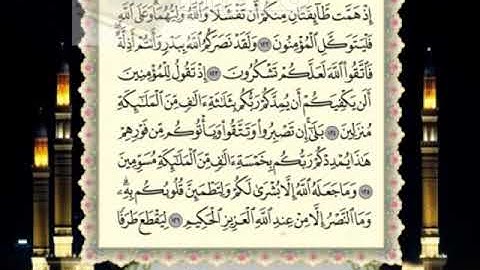 إِذْ هَمَّت طَّآئِفَتَانِ مِنكُمْ أَن تَفْشَلَا وَٱللَّهُ وَلِيُّهُمَا وَعَلَى ٱللَّهِ
فَلْيَتَوَكَّلِ ٱلْمُؤْمِنُونَ ١٢٢ وَلَقَدْ نَصَرَكُمُ ٱللَّهُ بِبَدْرٍ وَأَنتُمْ أَذِلَّةٌ
فَٱتَّقُوا۟ ٱللَّهَ لَعَلَّكُمْ تَشْكُرُونَ ١٢٣ إِذْ تَقُولُ لِلْمُؤْمِنِينَ
أَلَن يَكْفِيَكُمْ أَن يُمِدَّكُمْ رَبُّكُم بِثَلَٰثَةِ ءَالَٰفٍ مِّنَ ٱلْمَلَٰٓئِكَةِ
مُنزَلِينَ ١٢٤ بَلَىٰٓ إِن تَصْبِرُوا۟ وَتَتَّقُوا۟ وَيَأْتُوكُم مِّن فَوْرِهِمْ
هَٰذَا يُمْدِدْكُمْ رَبُّكُم بِخَمْسَةِ ءَالَٰفٍ مِّنَ ٱلْمَلَٰٓئِكَةِ مُسَوِّمِينَ
١٢٥ وَمَا جَعَلَهُ ٱللَّهُ إِلَّا بُشْرَىٰ لَكُمْ وَلِتَطْمَئِنَّ قُلُوبُكُم بِهِۦ
وَمَا ٱلنَّصْرُ إِلَّا مِنْ عِندِ ٱللَّهِ ٱلْعَزِيزِ ٱلْحَكِيمِ ١٢٦ لِيَقْطَعَ طَرَفًا